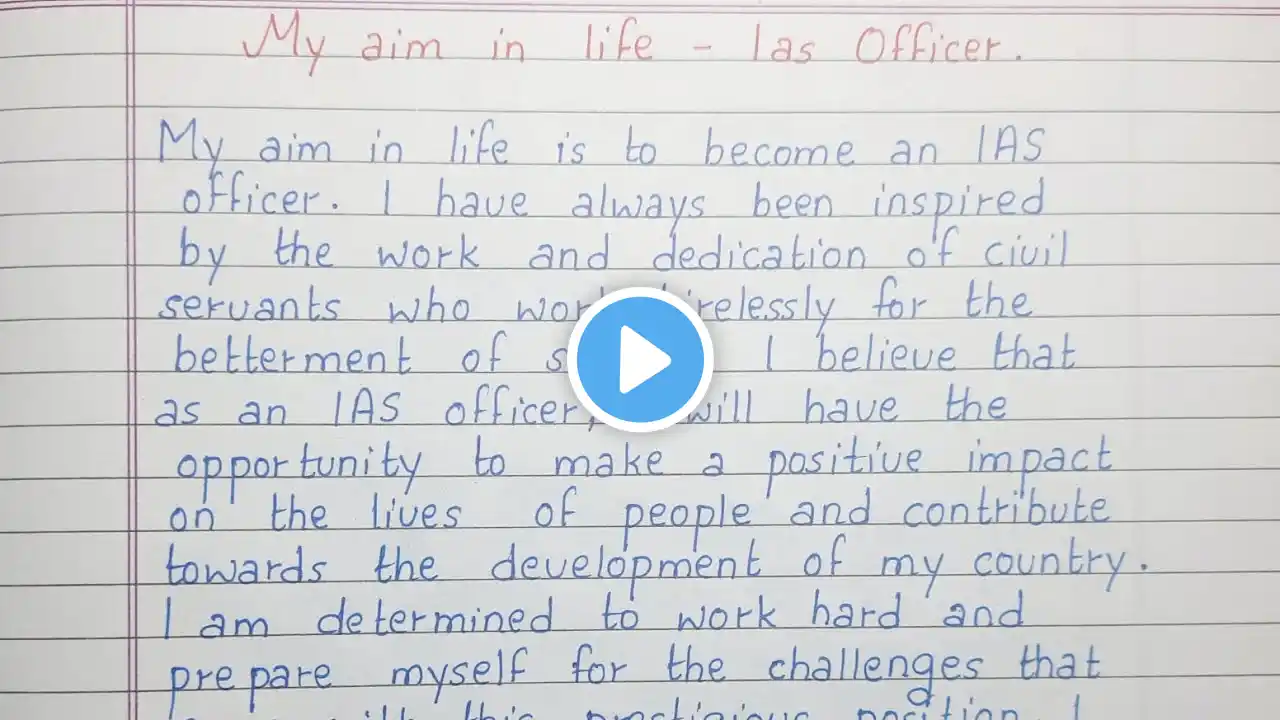 My aim in life - Ias Officer.
My aim in life is to become an IAS
officer. I have always been inspired
by the work and dedication of civil
servants who work tirelessly for the
betterment of I believe that
as an IAS officer, will have the
opportunity to make a positive impact
on the lives of people and contribute
towards the development of my country.
I am determined to work hard and
prepare myself for the challenges that
this position I